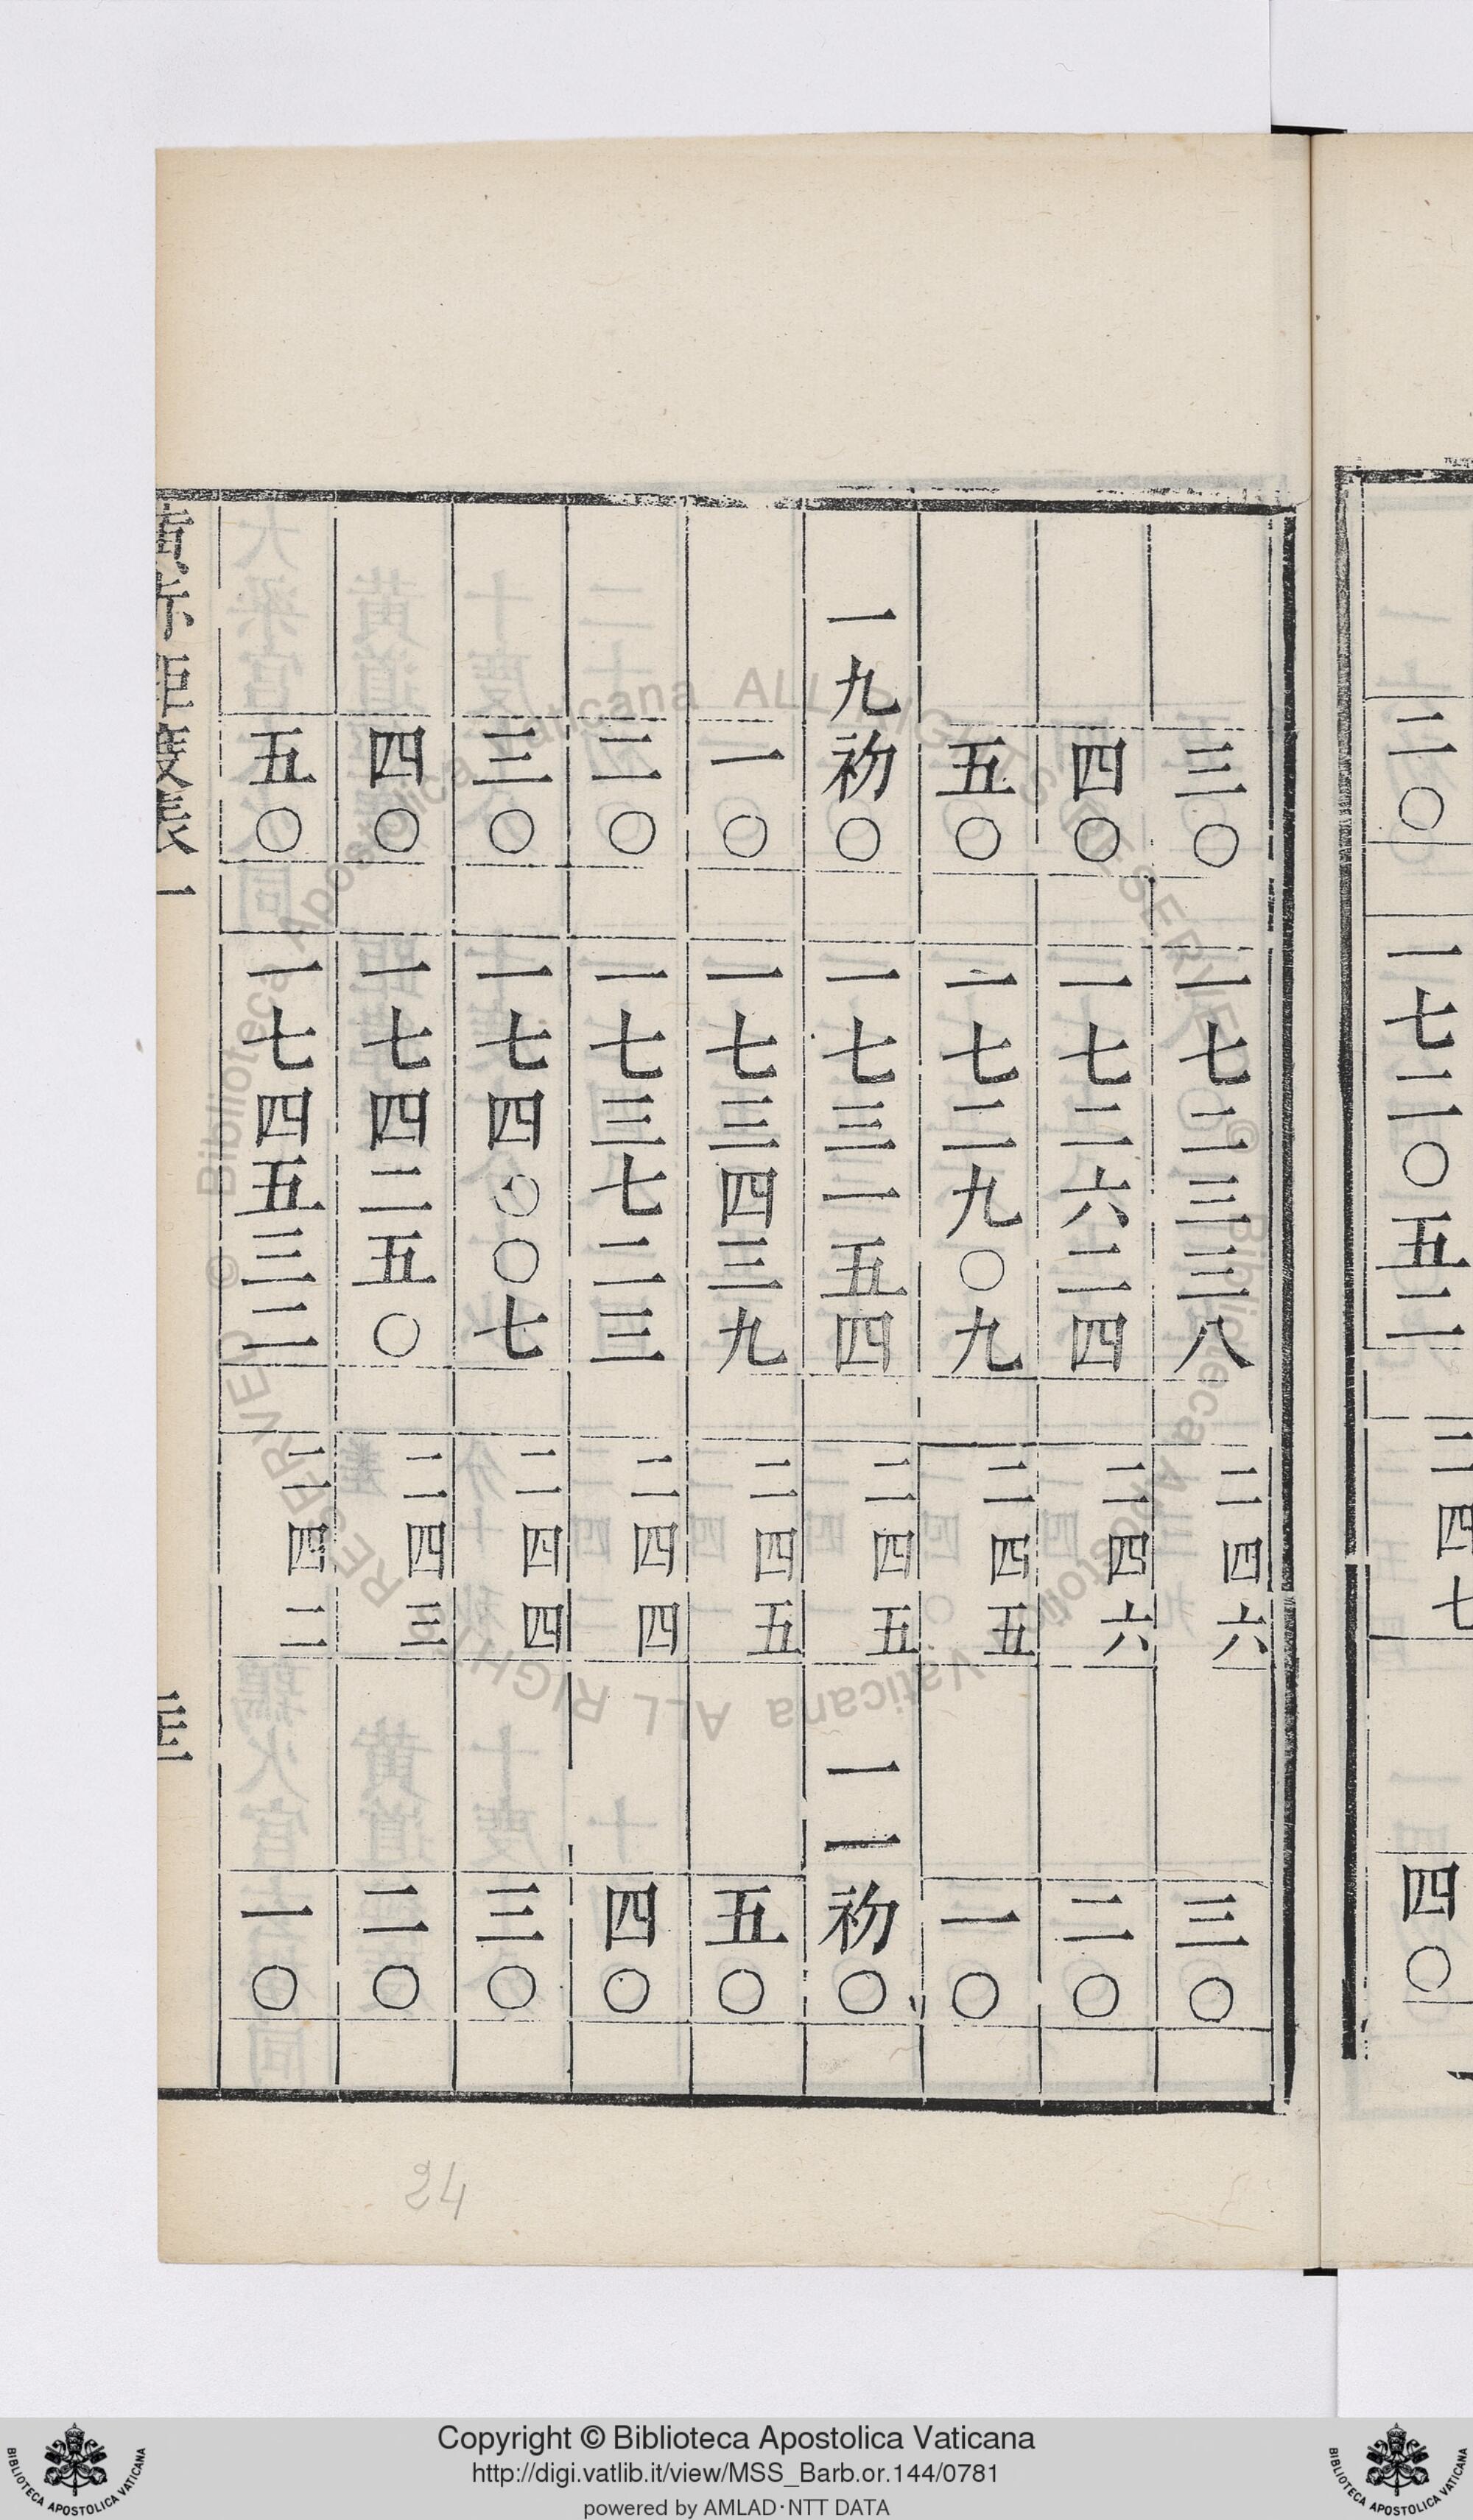 二〇 一七二〇五二 二四七 四〇
三〇 一七二三三八 二四六 三〇
四〇 一七二六二四 二四六 二〇
五〇 一七二九〇九 二四五 一〇
一九 初〇 一七三一五四 二四五 一一 初〇
一〇 一七三四三九 二四五 五〇
二〇 一七三七二三 二四四 四〇
三〇 一七四〇〇七 二四四 三〇
四〇 一七四二五〇 二四三 二〇
五〇 一七四五三二 二四二 一〇
24
© Biblioteca Apostolica Vaticana ALL RIGHTS RESERVED
© Biblioteca Apostolica Vaticana ALL RIGHTS RESERVED
Copyright © Biblioteca Apostolica Vaticana
http://digi.vatlib.it/view/MSS_Barb.or.144/0781
powered by AMLAD·NTT DATA
BIBLIOTECA APOSTOLICA VATICANA
BIBLIOTECA APOSTOLICA VATICANA